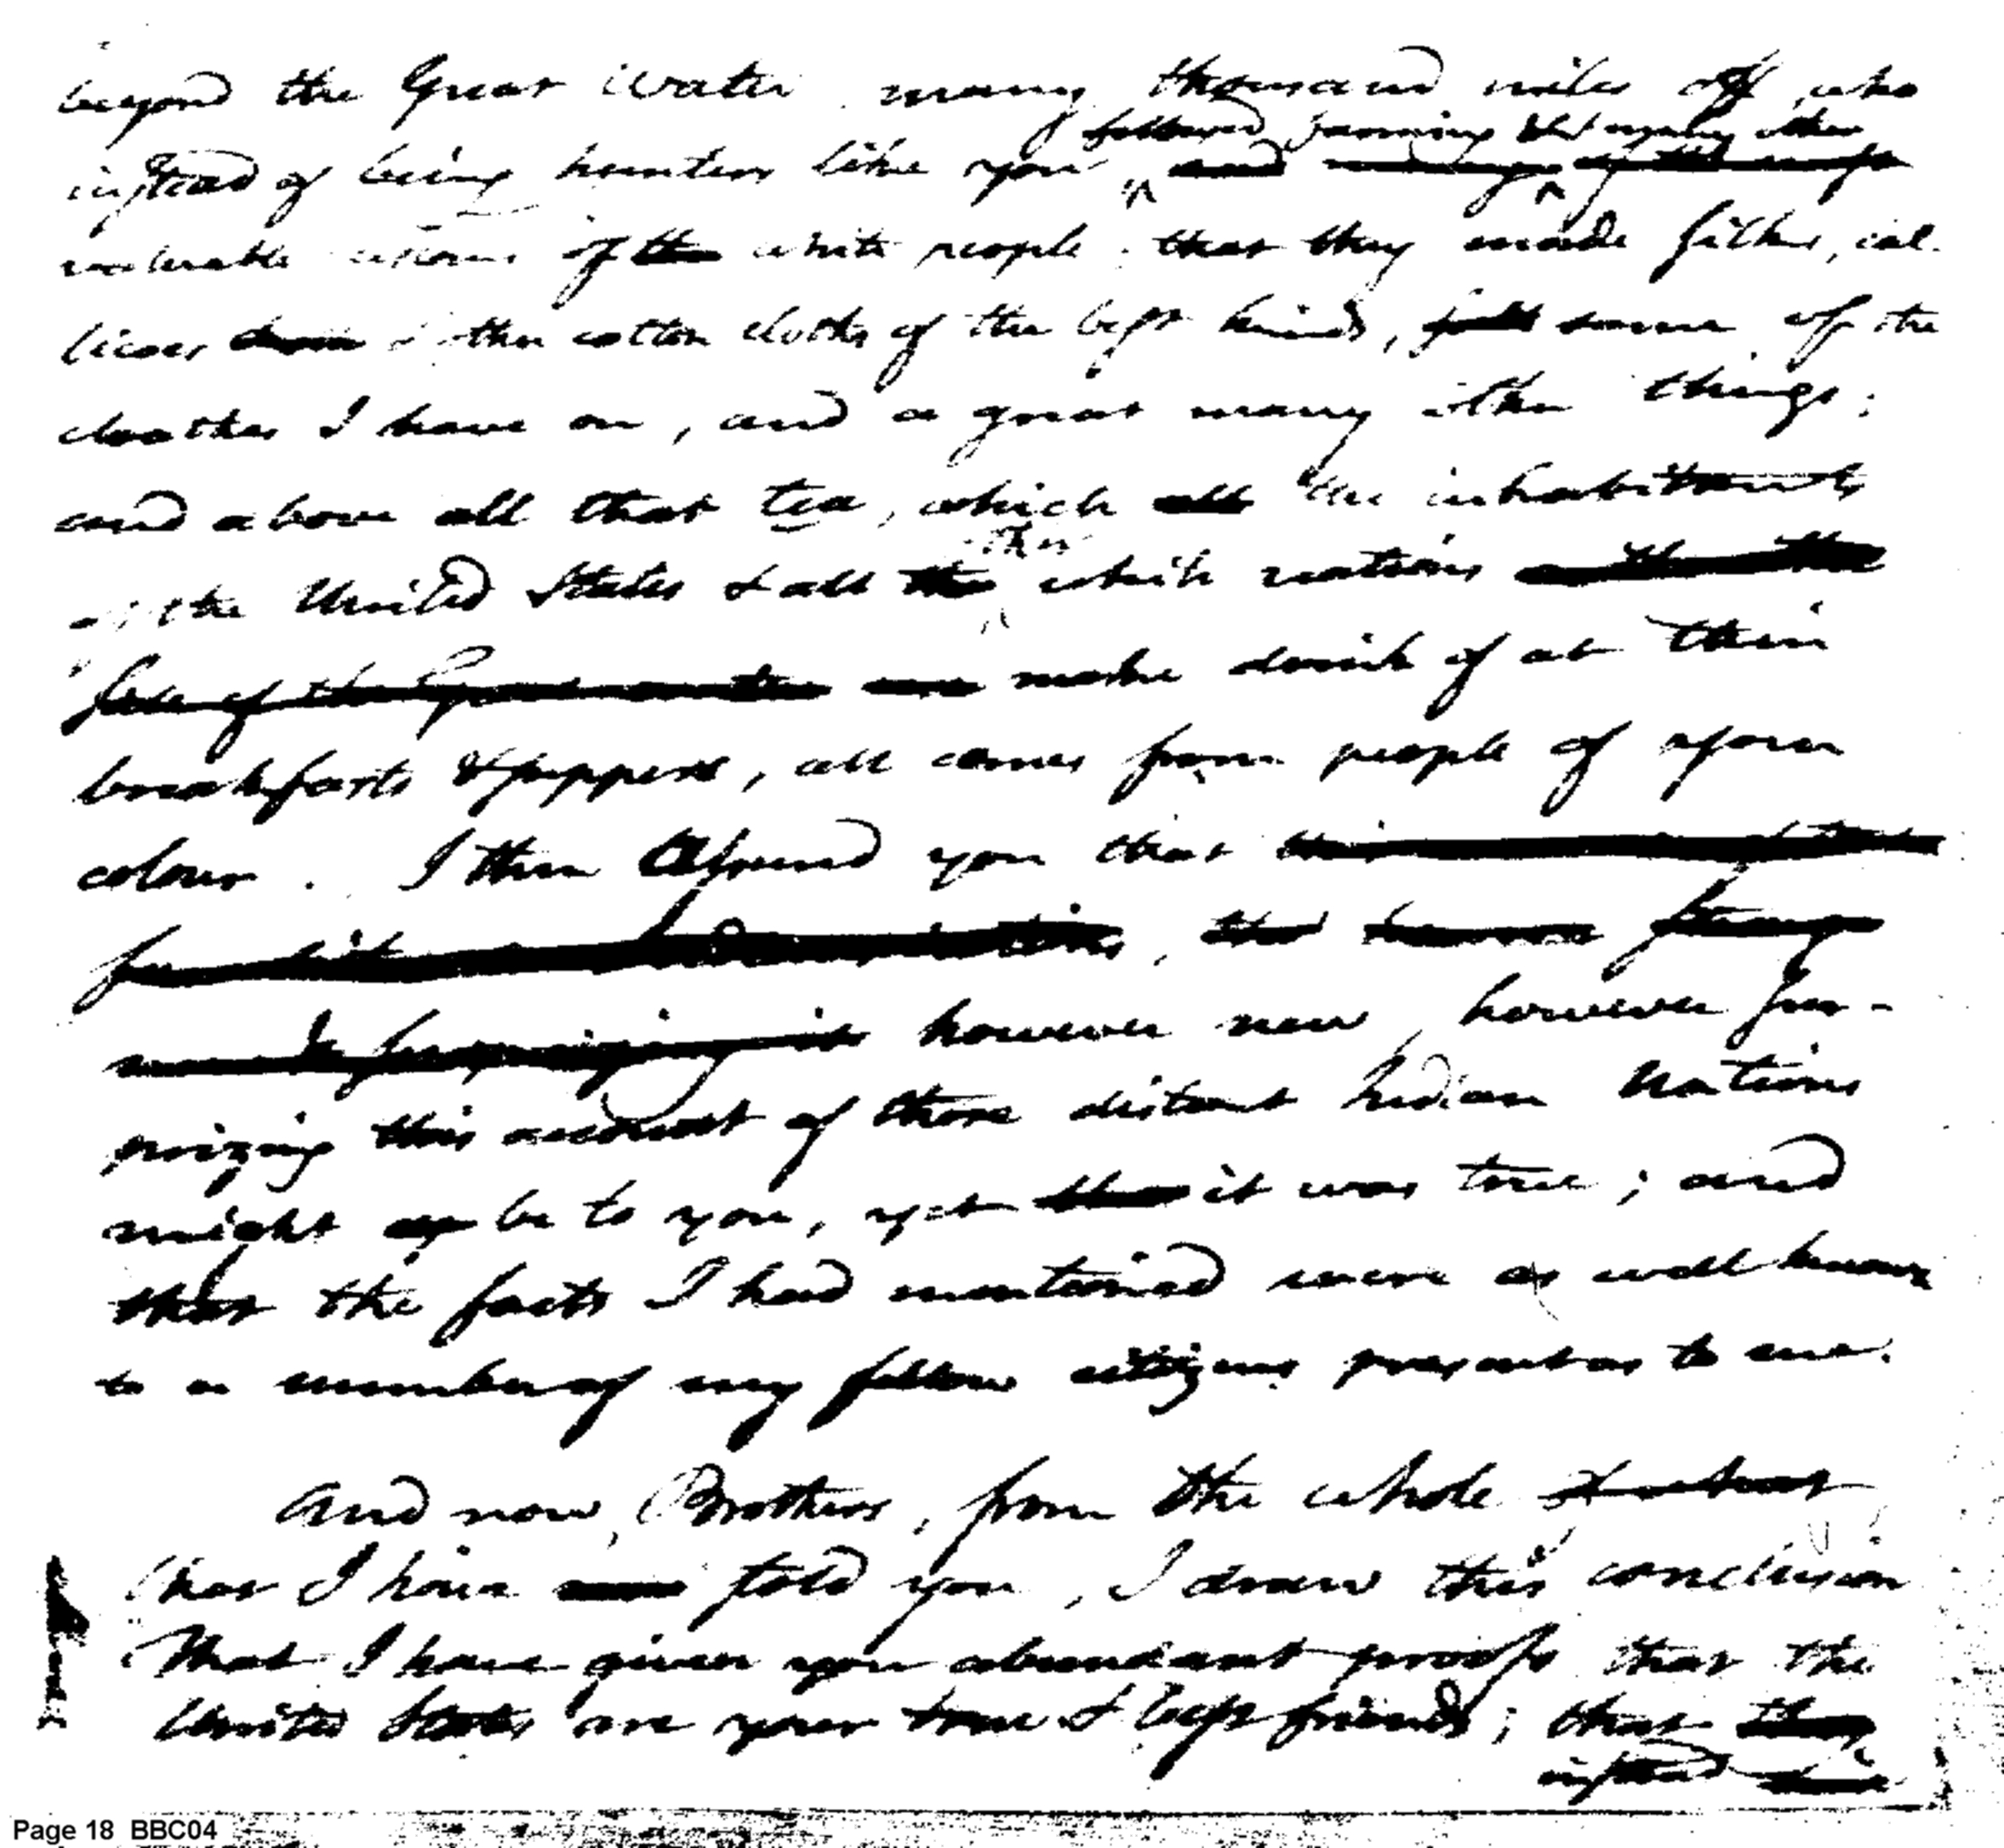 beyond the Great Water many thousand miles off, who
followed farming & many other
instead of being hunters like you, and
valuable of the white people: that they made silks, cal-
licoes & other cotton cloths of the best kinds, some of the
cloathes I have on, and a great many other things;
and above all that tea, which all the inhabitants
other
of the United States & all the white nations
side of the Great water make drink of at their
breakfasts & suppers, all comes from people of your
colour. I then assured you that
however new, however sur-
prizing this account of those distant Indian Nations
might be to you, yet that it was true; and
that the facts I had mentioned were as well known
to a number of my fellow citizens present as to me.
And now, Brothers, from the whole of what
that I have told you, I draw this conclusion
That I have given you abundant proofs that the
United States are your true & best friends; that they
instead
Page 18 BBC04